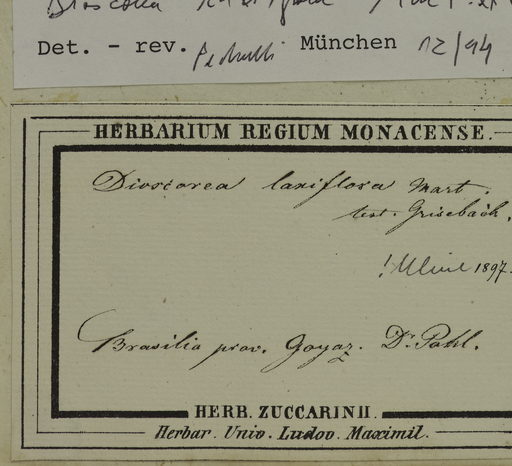 Dioscorea laxiflora Mart.
Det. - rev. Pedralli München 12/94
HERBARIUM REGIUM MONACENSE.
Dioscorea laxiflora Mart.
test. Grisebach.
! Uline 1897.
Brasilia prov. Goyaz. Dr. Pohl.
HERB. ZUCCARINII.
Herbar. Univ. Ludov. Maximil.